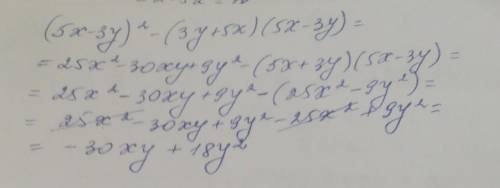 (5x-3y)²-(3y+5x)(5x-3y)=
=25x²-30xy+9y²-(5x+3y)(5x-3y)=
=25x²-30xy+9y²-(25x²-9y²)=
=25x²-30xy+9y²-25x²+9y²=
=-30xy+18y²